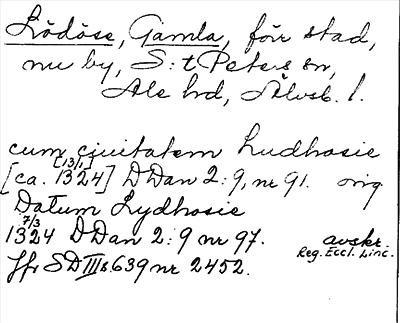 Lödöse, Gamla, förr stad,
nu by, S:t Peters sn,
Ale hd, Älvsb. l.
cum ciuitatem Ludhosie
[13/1]
[ca. 1324] DDan 2:9, nr 91. orig
Datum Lydhosie
7/3
1324 DDan 2:9 nr 97. avskr.
Reg. Eccl. Linc.
Jfr SD III s. 639 nr 2452.